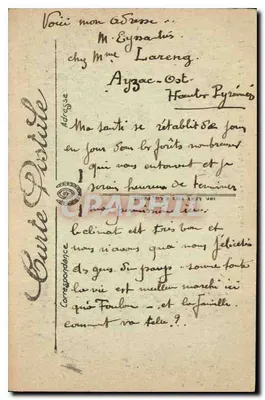 Voici mon adresse..
M. Eyssautier
chez Mme Lareng
Ayzac-Ost
Hautes Pyrénées
Ma santé se rétablit de jour
en jour dans les forêts nombreuses
qui vous entourent et je
serais heureux de terminer
le climat est très bon et
nous n'avons qu'à nous féliciter
des gens du pays - somme toute
la vie est meilleur marché ici
qu'à Toulon - et la famille
comment va-t-elle ?.
Carte Postale
Adresse
Correspondance